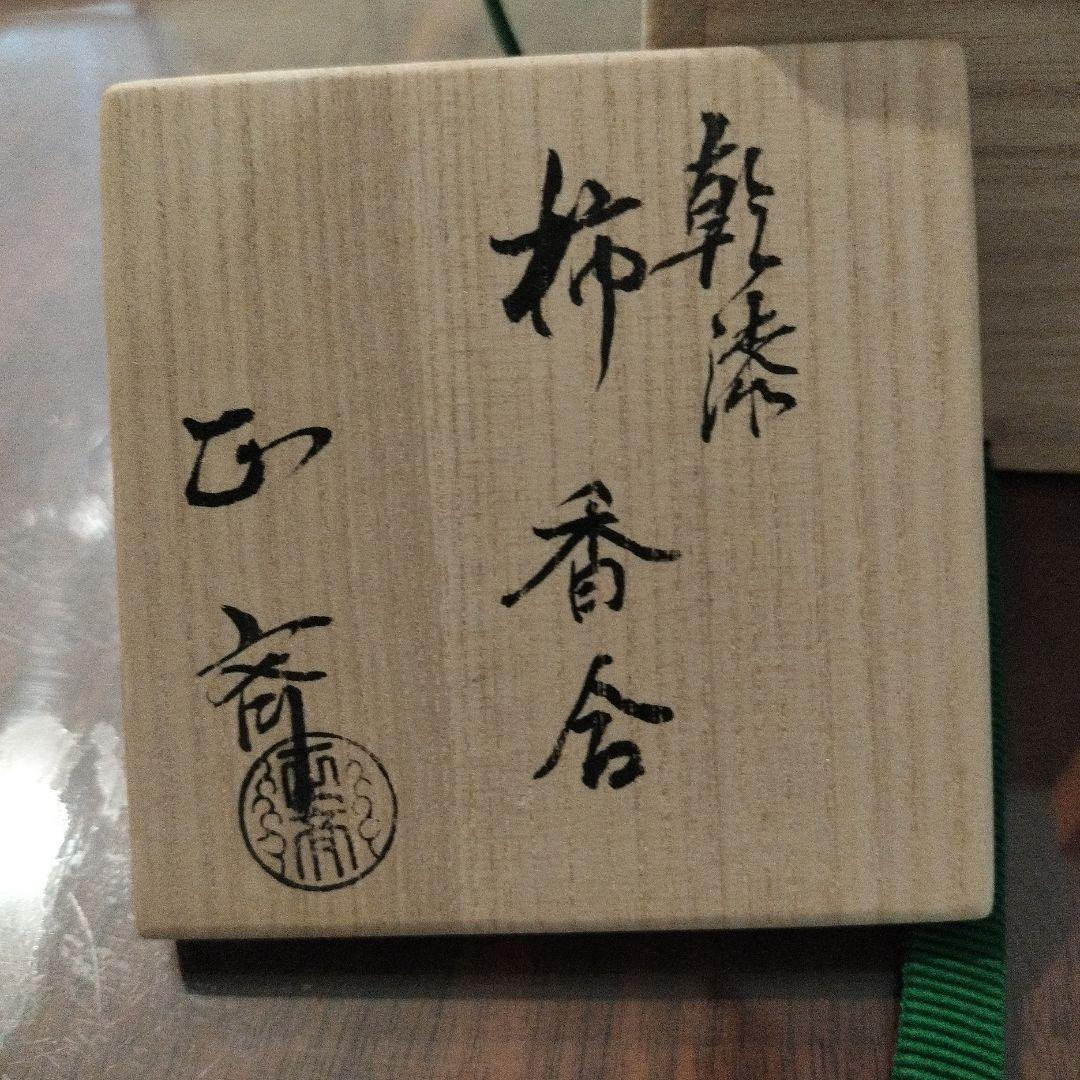 乾漆
柿香合
正斎